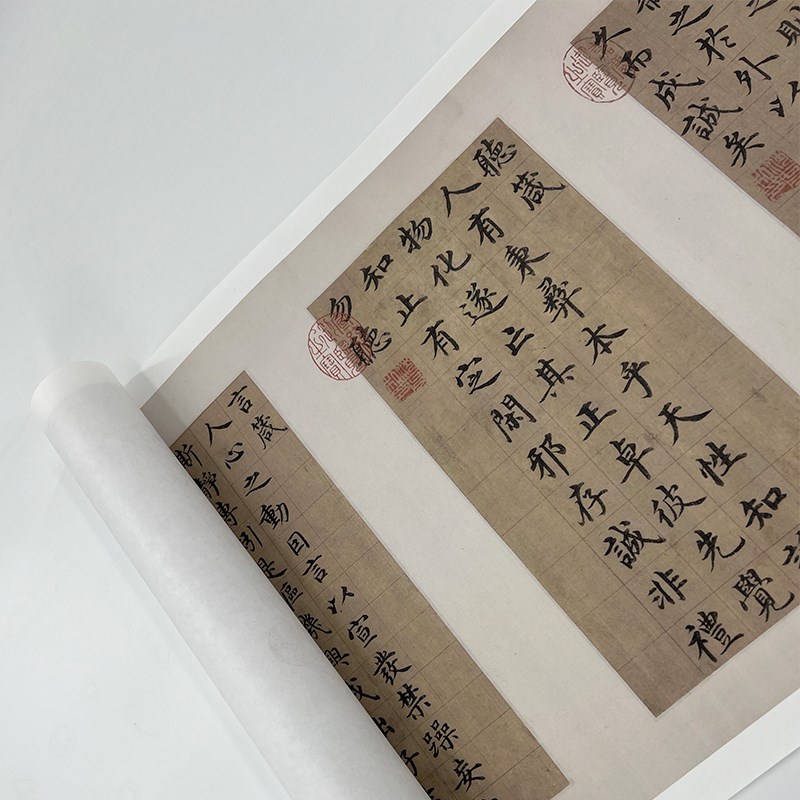 則
之於外以
久而成誠矣
聽箴
人有秉彝本乎天性知
物化遂亡其正卓彼先覺
知止有定閑邪存誠非禮
勿聽
言箴
人心之動因言以宣發禁躁妄
斯靜專矧是樞機興戎出好